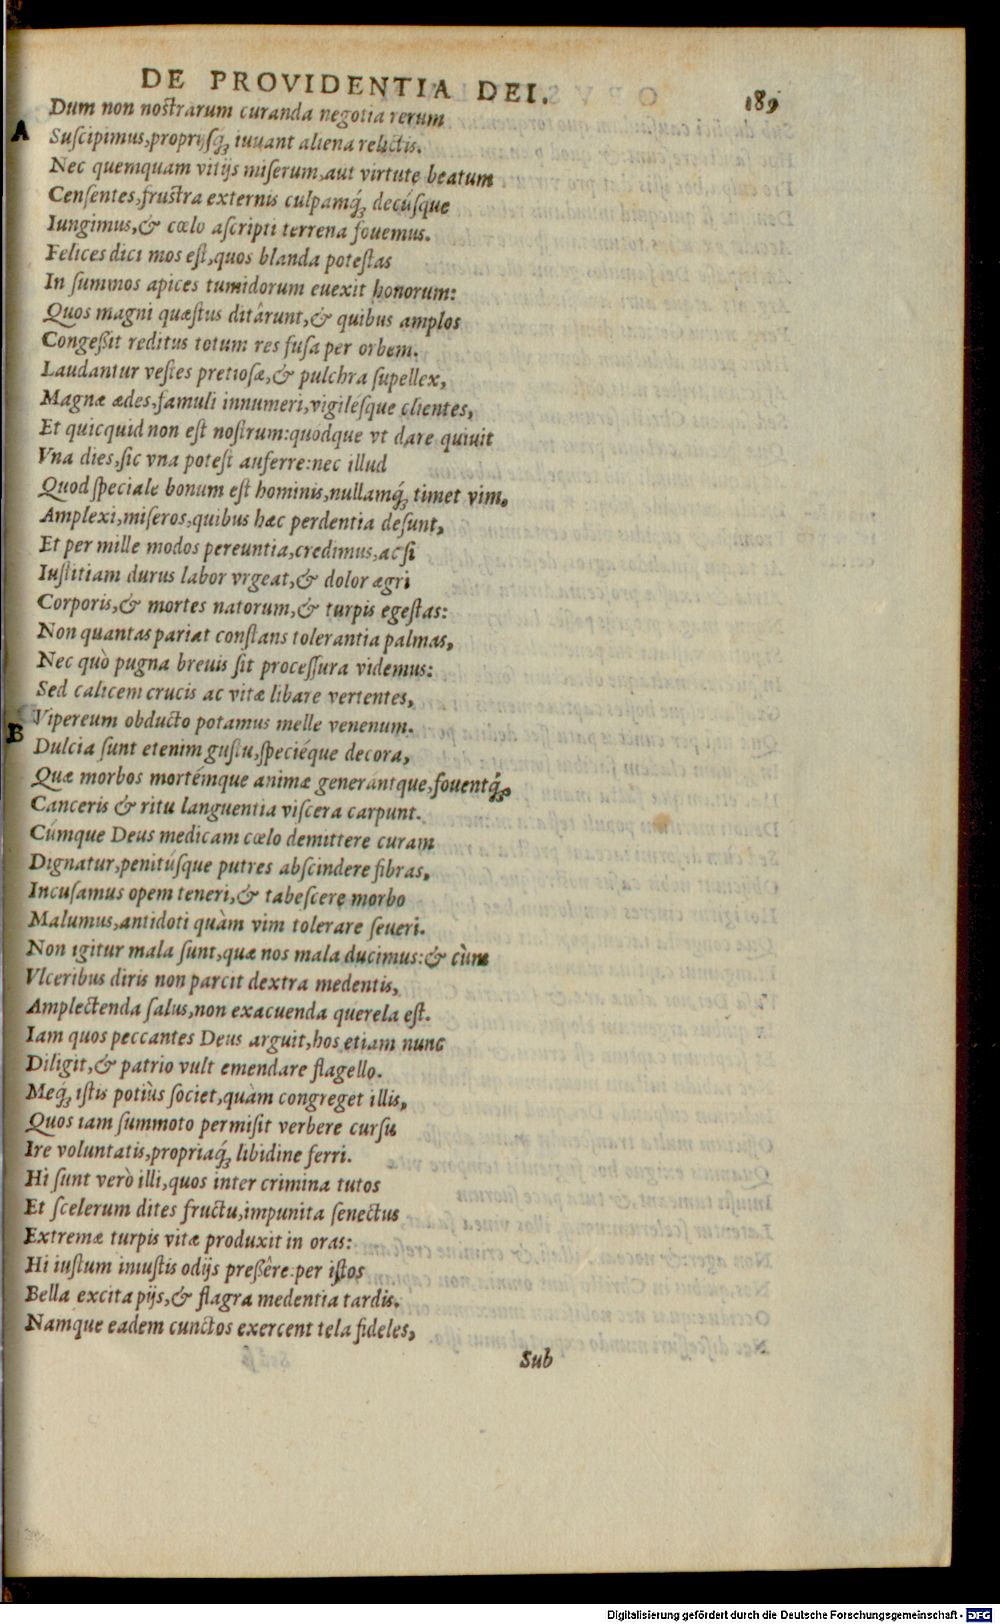 DE PROVIDENTIA DEI. 189
Dum non nostrarum curanda negotia rerum
A Suscipimus,proprijsq́; iuuant aliena relictis.
Nec quemquam vitijs miserum,aut virtute beatum
Censentes,frustra externis culpamq́; decúsque
Iungimus,& cœlo ascripti terrena fouemus.
Felices dici mos est,quos blanda potestas
In summos apices tumidorum euexit honorum:
Quos magni quæstus ditârunt,& quibus amplos
Congeßit reditus totum res fusa per orbem.
Laudantur vestes pretiosæ,& pulchra supellex,
Magnæ ædes,famuli innumeri,vigilésque clientes,
Et quicquid non est nostrum:quodque vt dare quiuit
Vna dies,sic vna potest auferre:nec illud
Quod speciale bonum est hominis,nullamq́; timet vim.
Amplexi,miseros,quibus hæc perdentia desunt,
Et per mille modos pereuntia,credimus,ac si
Iustitiam durus labor vrgeat,& dolor ægri
Corporis,& mortes natorum,& turpis egestas:
Non quantas pariat constans tolerantia palmas,
Nec quò pugna breuis sit processura videmus:
Sed calicem crucis ac vitæ libare vertentes,
Vipereum obducto potamus melle venenum.
B Dulcia sunt etenim gustu,speciéque decora,
Quæ morbos mortémque animæ generántque,fouentq́;,
Canceris & ritu languentia viscera carpunt.
Cúmque Deus medicam cœlo demittere curam
Dignatur,penitúsque putres abscindere fibras,
Incusamus opem teneri,& tabescere morbo
Malumus,antidoti quàm vim tolerare seueri.
Non igitur mala sunt,quæ nos mala ducimus:& cùm
Vlceribus diris non parcit dextra medentis,
Amplectenda salus,non exacuenda querela est.
Iam quos peccantes Deus arguit,hos etiam nunc
Diligit,& patrio vult emendare flagello.
Meq́; istis potiùs societ,quàm congreget illis,
Quos iam summoto permisit verbere cursu
Ire voluntatis,propriaq́; libidine ferri.
Hi sunt verò illi,quos inter crimina tutos
Et scelerum dites fructu,impunita senectus
Extremæ turpis vitæ produxit in oras:
Hi iustum iniustis odijs preßêre:per istos
Bella excita pijs,& flagra medentia tardis.
Namque eadem cunctos exercent tela fideles,
Sub
Digitalisierung gefördert durch die Deutsche Forschungsgemeinschaft - DFG